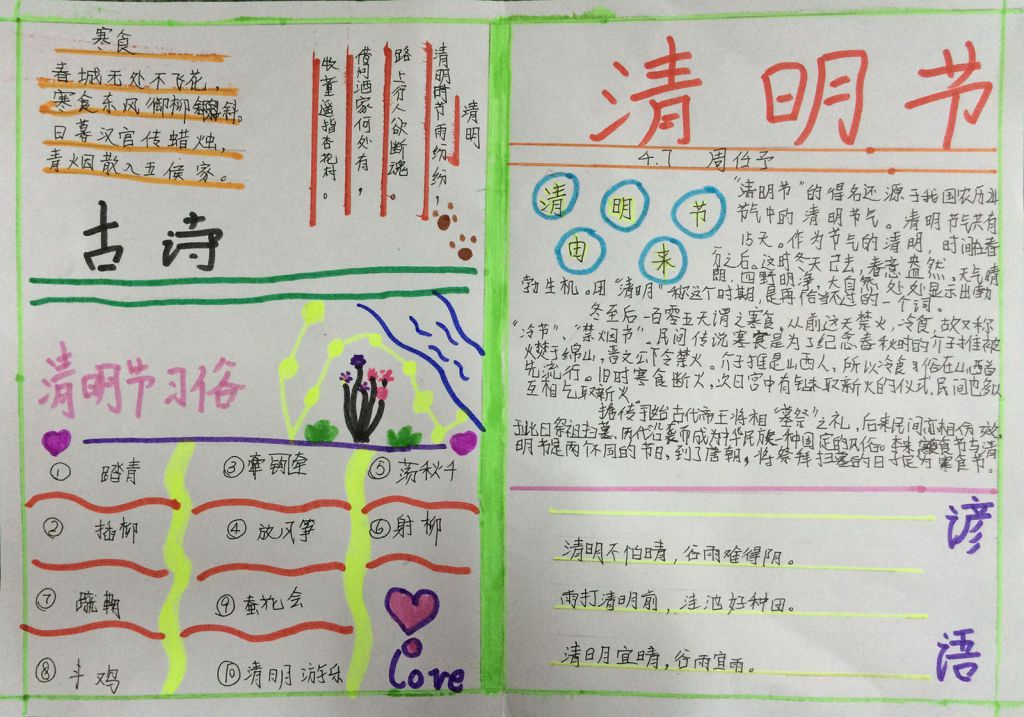 寒食
春城无处不飞花，
寒食东风御柳斜。
日暮汉宫传蜡烛，
青烟散入五侯家。
清明
清明时节雨纷纷，
路上行人欲断魂。
借问酒家何处有，
牧童遥指杏花村。
古诗
清明节习俗
① 踏青
② 插柳
③ 牵钩
④ 放风筝
⑤ 荡秋千
⑥ 射柳
⑦ 蹴鞠
⑧ 斗鸡
⑨ 蚕花会
⑩ 清明游乐
Love
清明节
4.7 周任予
清明节由来
"清明节"的得名还源于我国农历24
节气中的清明节气。清明节气共有
15天。作为节气的清明，时间在春
分之后。这时冬天已去，春意盎然，天气晴
朗，四野明净，大自然处处显示出勃
勃生机。用"清明"称这个时期，是再恰当不过的一个词。
冬至后一百零五天谓之寒食。从前这天禁火，冷食，故又称
"冷节"、"禁烟节"。民间传说寒食是为了纪念春秋时的介子推被
火焚于绵山，晋文公下令禁火。介子推是山西人，所以冷食习俗在山西首
先流行。旧时寒食断火，次日宫中有钻木取新火的仪式，民间也多以
互相乞取新火。
据传始古代帝王将相"墓祭"之礼，后来民间亦相仿效
于此日祭祖扫墓，历代沿袭而成为中华民族一种固定的风俗。本来寒食节与清
明节是两个不同的节日，到了唐朝，将祭拜扫墓的日子定为寒食节。
谚语
清明不怕晴，谷雨难得阴。
雨打清明前，洼地好种田。
清明宜晴，谷雨宜雨。